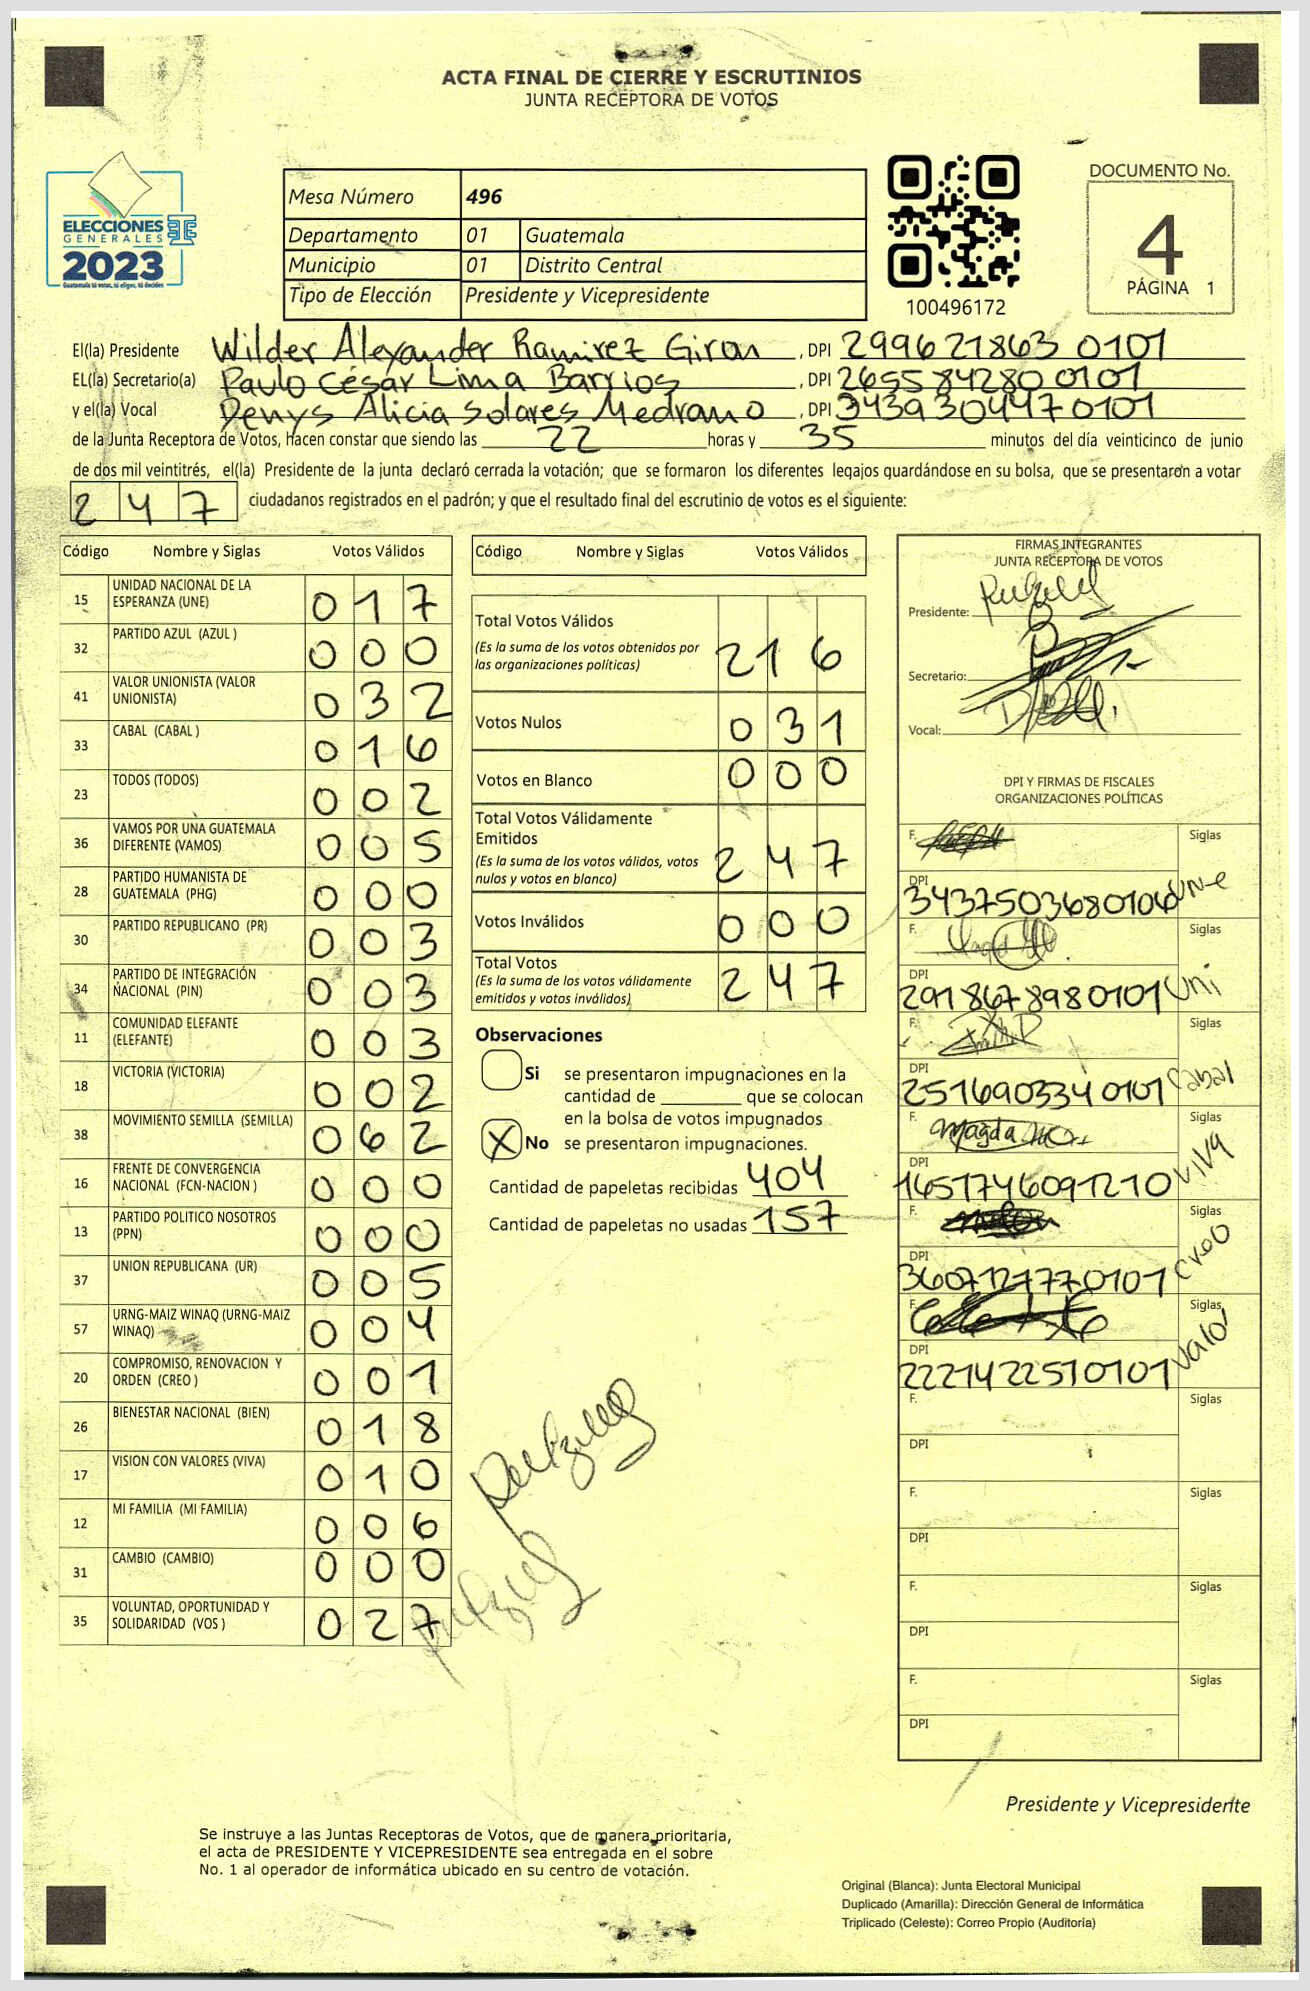 ACTA FINAL DE CIERRE Y ESCRUTINIOS
JUNTA RECEPTORA DE VOTOS
ELECCIONES
GENERALES
2023
Guatemala tú votas, tú eliges, tú decides
Mesa Número 496
Departamento 01 Guatemala
Municipio 01 Distrito Central
Tipo de Elección Presidente y Vicepresidente
100496172
DOCUMENTO No.
4
PÁGINA 1
El(la) Presidente Wilder Alexander Ramirez Giron , DPI 299621863 0101
EL(la) Secretario(a) Paulo César Lima Barrios , DPI 265584280 0101
y el(la) Vocal Denys Alicia Solares Medrano , DPI 343930447 0101
de la Junta Receptora de Votos, Hacen constar que siendo las 22 horas y 35 minutos del día veinticinco de junio
de dos mil veintitrés, el(la) Presidente de la junta declaró cerrada la votación; que se formaron los diferentes legajos guardándose en su bolsa, que se presentaron a votar
2 4 7 ciudadanos registrados en el padrón; y que el resultado final del escrutinio de votos es el siguiente:
Código Nombre y Siglas Votos Válidos
15 UNIDAD NACIONAL DE LA ESPERANZA (UNE) 0 1 7
32 PARTIDO AZUL (AZUL ) 0 0 0
41 VALOR UNIONISTA (VALOR UNIONISTA) 0 3 2
33 CABAL (CABAL ) 0 1 6
23 TODOS (TODOS) 0 0 2
36 VAMOS POR UNA GUATEMALA DIFERENTE (VAMOS) 0 0 5
28 PARTIDO HUMANISTA DE GUATEMALA (PHG) 0 0 0
30 PARTIDO REPUBLICANO (PR) 0 0 3
34 PARTIDO DE INTEGRACIÓN NACIONAL (PIN) 0 0 3
11 COMUNIDAD ELEFANTE (ELEFANTE) 0 0 3
18 VICTORIA (VICTORIA) 0 0 2
38 MOVIMIENTO SEMILLA (SEMILLA) 0 6 2
16 FRENTE DE CONVERGENCIA NACIONAL (FCN-NACION ) 0 0 0
13 PARTIDO POLITICO NOSOTROS (PPN) 0 0 0
37 UNION REPUBLICANA (UR) 0 0 5
57 URNG-MAIZ WINAQ (URNG-MAIZ WINAQ) 0 0 4
20 COMPROMISO, RENOVACION Y ORDEN (CREO ) 0 0 1
26 BIENESTAR NACIONAL (BIEN) 0 1 8
17 VISION CON VALORES (VIVA) 0 1 0
12 MI FAMILIA (MI FAMILIA) 0 0 6
31 CAMBIO (CAMBIO) 0 0 0
35 VOLUNTAD, OPORTUNIDAD Y SOLIDARIDAD (VOS ) 0 2 7
Código Nombre y Siglas Votos Válidos
Total Votos Válidos
(Es la suma de los votos obtenidos por
las organizaciones políticas) 2 1 6
Votos Nulos 0 3 1
Votos en Blanco 0 0 0
Total Votos Válidamente
Emitidos
(Es la suma de los votos válidos, votos
nulos y votos en blanco) 2 4 7
Votos Inválidos 0 0 0
Total Votos
(Es la suma de los votos válidamente
emitidos y votos inválidos) 2 4 7
Observaciones
Si se presentaron impugnaciones en la
cantidad de ________ que se colocan
en la bolsa de votos impugnados
X No se presentaron impugnaciones.
Cantidad de papeletas recibidas 404
Cantidad de papeletas no usadas 157
FIRMAS INTEGRANTES
JUNTA RECEPTORA DE VOTOS
Presidente:
Secretario:
Vocal:
DPI Y FIRMAS DE FISCALES
ORGANIZACIONES POLÍTICAS
F. Siglas
DPI 3437503680106 une
F. Siglas
DPI 2918678980101 Uni
F. Siglas
DPI 2516903340101 Cabal
F. Magda Siglas
DPI 1651746091210 VIVA
F. Siglas
DPI 3607127770101 Creo
F. Siglas
DPI 2221422510101 Valor
F. Siglas
DPI
F. Siglas
DPI
F. Siglas
DPI
F. Siglas
DPI
Presidente y Vicepresidente
Se instruye a las Juntas Receptoras de Votos, que de manera prioritaria,
el acta de PRESIDENTE Y VICEPRESIDENTE sea entregada en el sobre
No. 1 al operador de informática ubicado en su centro de votación.
Original (Blanca): Junta Electoral Municipal
Duplicado (Amarilla): Dirección General de Informática
Triplicado (Celeste): Correo Propio (Auditoría)